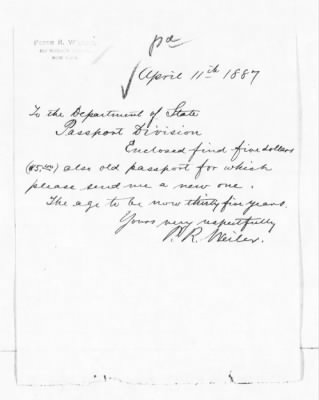 pd
Peter R. W
NEW YORK.
April 11th 1887
To the Department of State
Passport Division
Enclosed find five dollars
($5.00) also old passport for which
please send me a new one.
The age to be now thirty five years.
Yours very respectfully
P. R. Weiler.